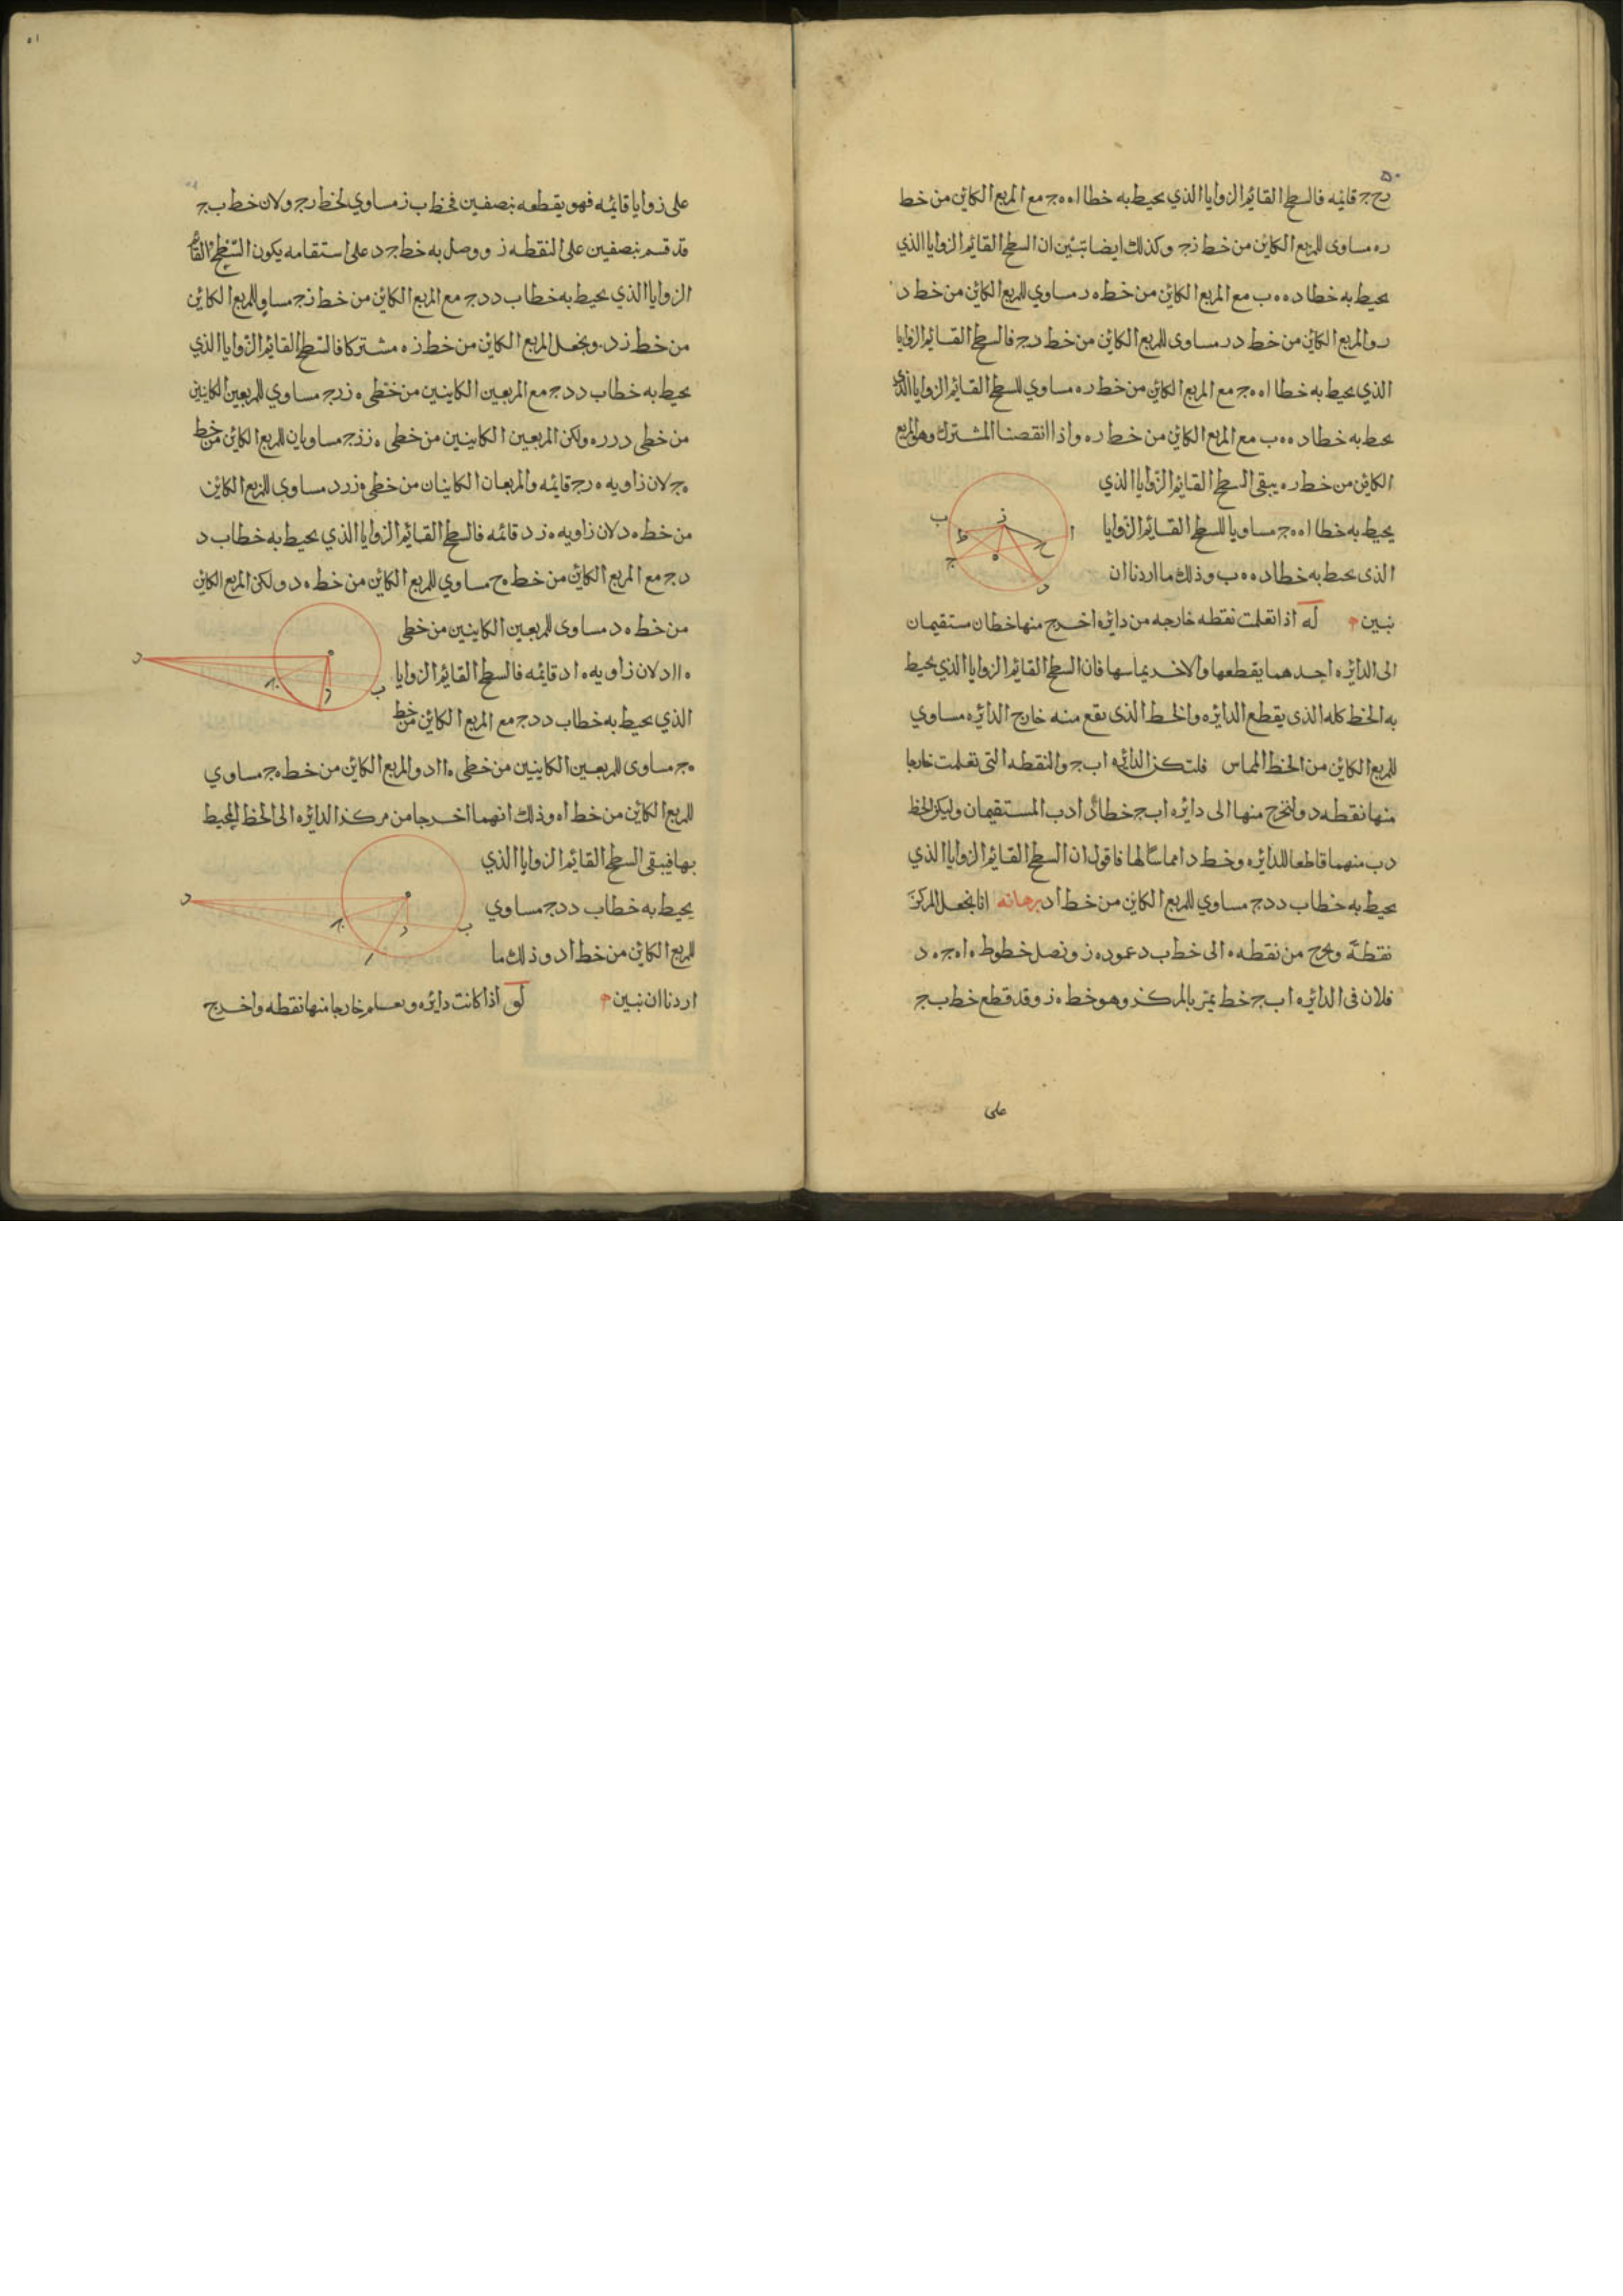 ٥٠
رح ج قائمه فالسطح القائم الزوايا الذي يحيط به خطا ا ه ه ج مع المربع الكائن من خط
ره مساوى للمربع الكائن من خط زج وكذلك ايضا نبين ان السطح القائم الزوايا الذي
يحيط به خطا د ه ه ب مع المربع الكائن من خط ه ر مساوي للمربع الكائن من خط د
ر والمربع الكائن من خط د ر مساوى للمربع الكائن من خط رج فالسطح القائم الزوايا
الذي يحيط به خطا ا ه ه ج مع المربع الكائن من خط ر ه مساوي للسطح القائم الزوايا الذي
يحيط به خطا د ه ه ب مع المربع الكائن من خط ر ه واذا انقصنا المشترك وهو المربع
الكائن من خط ر ه يبقى السطح القايم الزوايا الذي
يحيط به خطا ا ه ه ج مساويا للسطح القايم الزوايا
الذى يحيط به خطا د ه ه ب وذلك ما اردنا ان
نبين له اذا تعلمت نقطه خارجه من دائره اخرج منها خطان مستقيمان
الى الدائره احدهما يقطعها والاخر يماسها فان السطح القايم الزوايا الذي يحيط
به الخط كله الذى يقطع الدائره والخط الذى يقع منه خارج الدائره مساوي
للمربع الكائن من الخط المماس فلتكن الدائره اب ج والنقطه التى تعلمت خارجا
منها نقطه د ولنخرج منها الى دائره اب ج خطا دا دب المستقيمان وليكن الخط
دب منهما قاطعا للدائره وخط دا مماسا لها فاقول ان السطح القايم الزوايا الذي
يحيط به خطا ب د د ج مساوي للمربع الكائن من خط اد برهانه انا نجعل المركز
نقطة ه ونخرج من نقطه ه الى خط ب د عمود ه ز ونصل خطوط ه ا ه ج ه د
فلان فى الدائره اب ج خط يمر بالمركز وهو خط ه ز وقد قطع خط ب ج
على
ز
ب
ا
ط
ح
ه
ج
د
٥١
على زوايا قائمه فهو يقطعه بنصفين فخط ب ز مساوي لخط رج ولان خط ب ج
قد قسم بنصفين على النقطه ز ووصل به خط ج د على استقامه يكون السطح القائم
الزوايا الذي يحيط به خطا ب د د ج مع المربع الكائن من خط زج مساو للمربع الكائن
من خط زد ونجعل المربع الكائن من خط ز ه مشتركا فالسطح القائم الزوايا الذي
يحيط به خطا ب د د ج مع المربعين الكاينين من خطى ه ز رج مساوي للمربعين الكاينين
من خطى در ره ولكن المربعين الكاينين من خطى ه ز زج مساويان للمربع الكائن من خط
ه ج لان زاويه ه رج قائمه والمربعان الكاينان من خطى ه ز رد مساوى للمربع الكائن
من خط ه د لان زاويه ه ز د قائمه فالسطح القائم الزوايا الذي يحيط به خطا ب د
د ج مع المربع الكائن من خط ه ج مساوي للمربع الكائن من خط ه د ولكن المربع الكائن
من خط ه د مساوى للمربعين الكاينين من خطى
ه ا اد لان زاويه ه اد قائمه فالسطح القايم الزوايا
الذي يحيط به خطا ب د د ج مع المربع الكائن من خط
ه ج مساوى للمربعين الكاينين من خطى ه ا اد والمربع الكائن من خط ه ج مساوي
للمربع الكائن من خط اه وذلك انهما اخرجا من مركز الدائره الى الخط المحيط
بها فيبقى السطح القايم الزوايا الذي
يحيط به خطا ب د د ج مساوي
للمربع الكائن من خط اد وذلك ما
اردنا ان نبين لو اذا كانت دائره وتعلم خارجا منها نقطه واخرج
د
ه
ج
ر
ب
د
ه
ج
ر
ب
ا